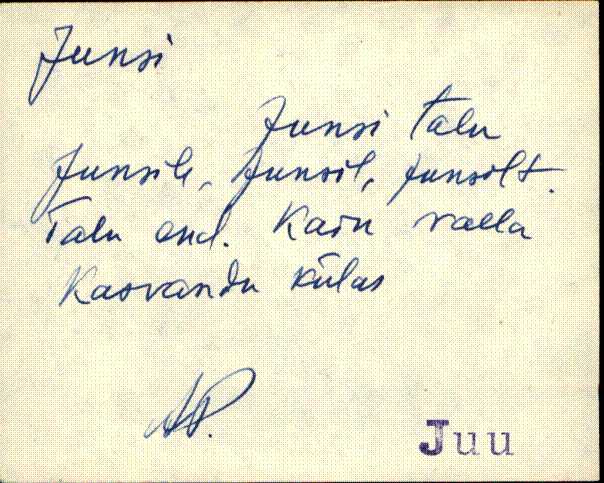 Junsi
Junsi talu
Junsile, Junsil, Junsilt.
Talu end. Kaiu valla
Kasvandu külas
AP.
Juu